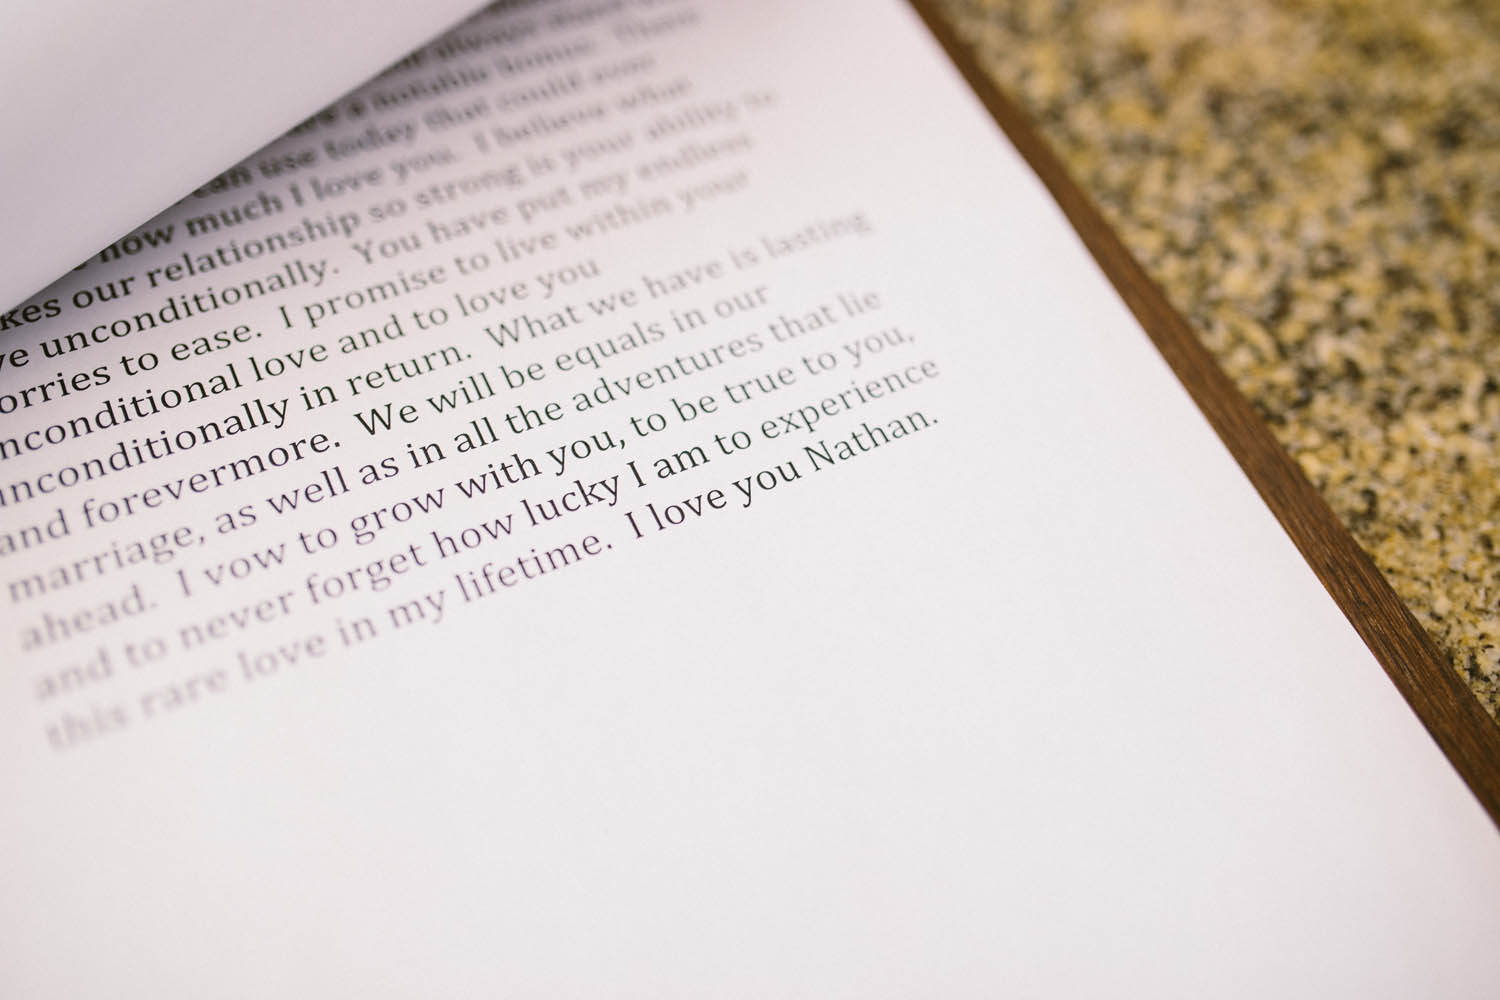 always
a notable bonus. There
can use today that could ever
how much I love you. I believe what
kes our relationship so strong is your ability to
ve unconditionally. You have put my endless
orries to ease. I promise to live within your
nconditional love and to love you
unconditionally in return. What we have is lasting
and forevermore. We will be equals in our
marriage, as well as in all the adventures that lie
ahead. I vow to grow with you, to be true to you,
and to never forget how lucky I am to experience
this rare love in my lifetime. I love you Nathan.